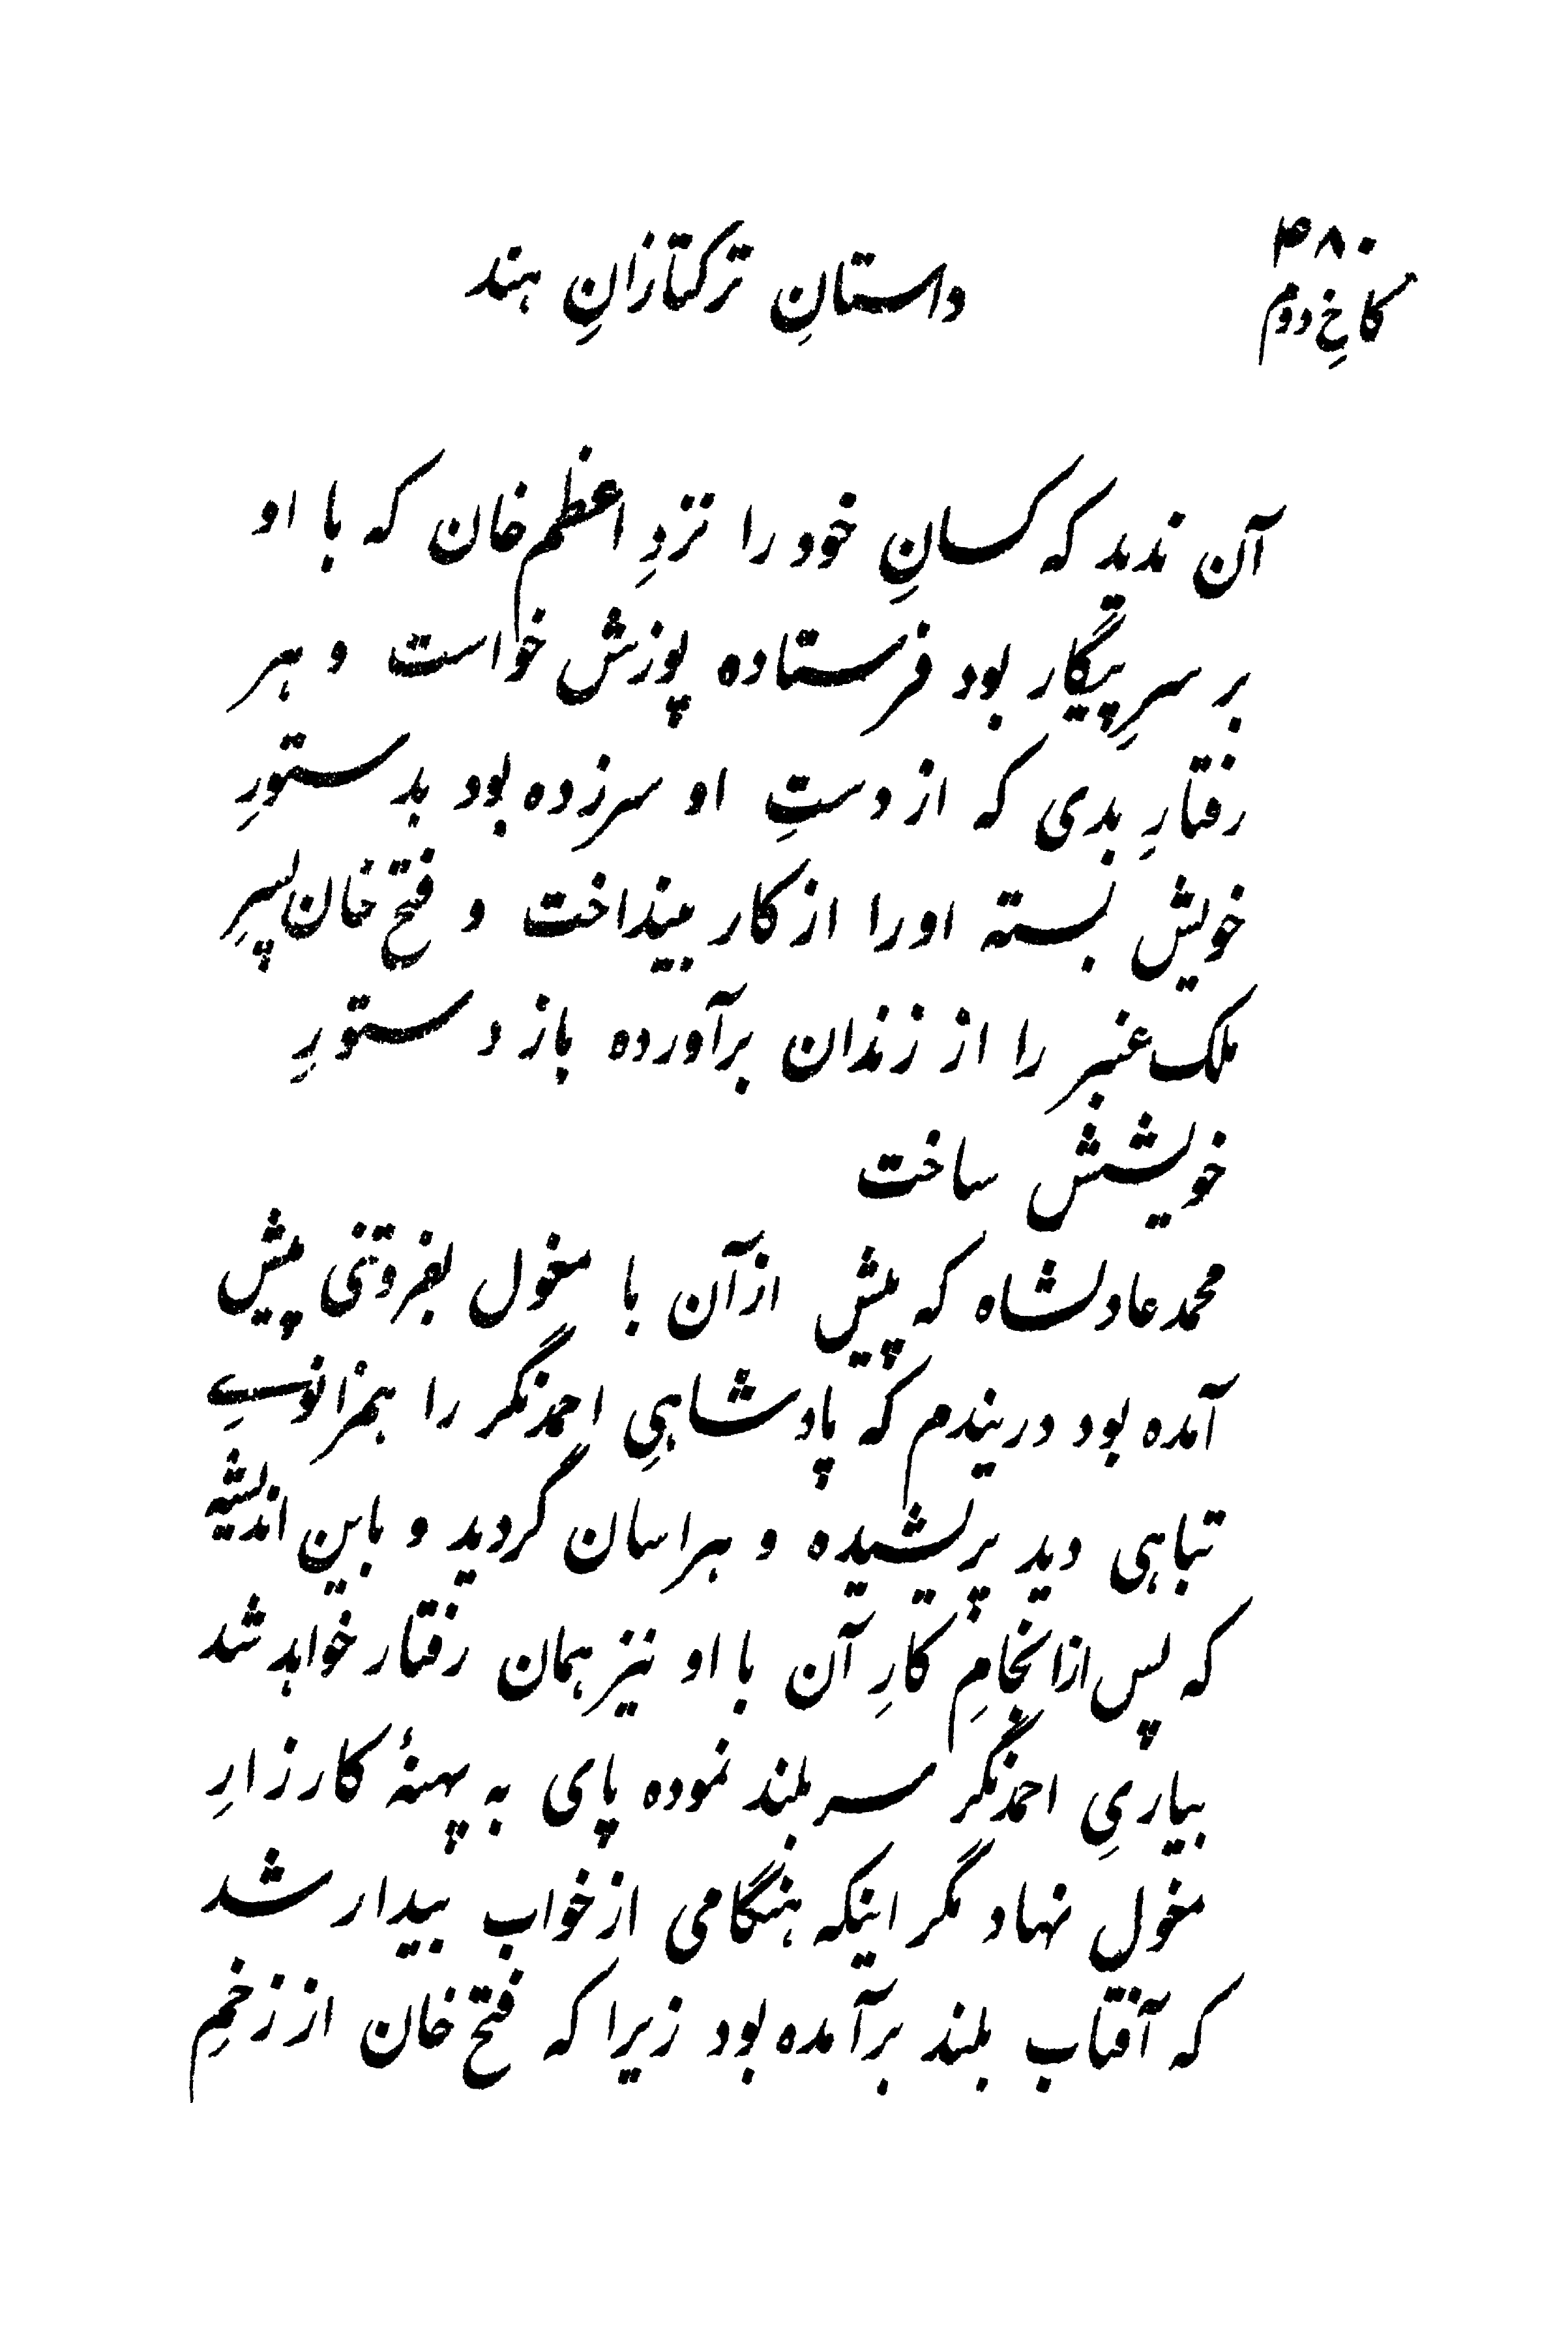 ۴۸۰
کاخِ دوم
داستانِ ترکتازانِ هند
آن ندید که کسانِ خود را نزدِ اعظم خان که با او
بر سرِ پیگار بود فرستاده پوزش خواست و هر
رفتارِ بدی که از دستِ او سرزده بود بدستورِ
خویش بسته اورا از کار بینداخت و فتح خان پسرِ
ملک عنبر را از زندان برآورده باز دستورِ
خویشش ساخت
محمد عادلشاه که پیش ازآن با مغول بفروتنی پیش
آمده بود دریندم که پادشاهیِ احمدنگر را همزانوےِ
تباهی دید پریشیده و هراسان گردید و باین اندیشه
که پس ازانجامِ کارِ آن با او نیز همان رفتار خواهد شد
بیاریِ احمدنگر سر بلند نموده پای به پهنهٔ کارزارِ
مغول نهاد مگر اینکه هنگامی از خواب بیدار شد
که آفتاب بلند برآمده بود زیرا که فتح خان از زخمِ